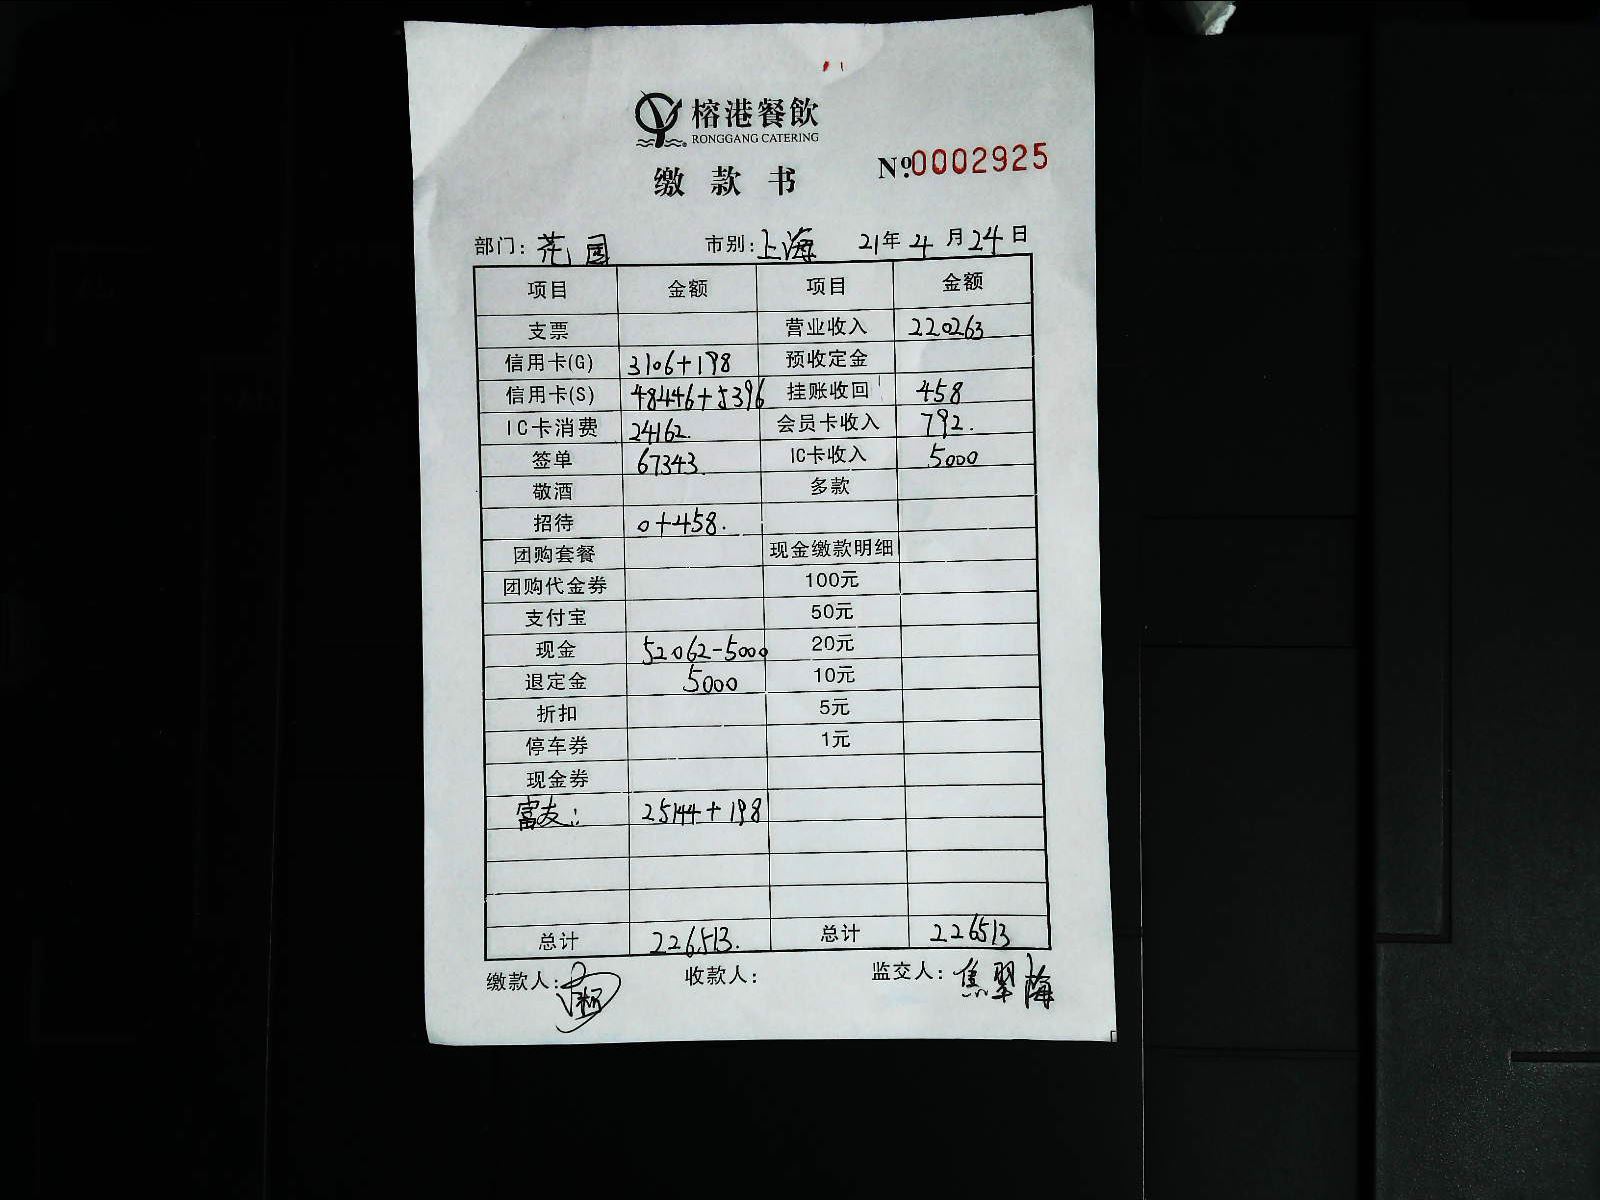 榕港餐飲
RONGGANG CATERING
缴款书
№0002925
部门：花园 市别：上海 21年4月24日
项目 金额 项目 金额
支票 营业收入 220263
信用卡(G) 3106+198 预收定金
信用卡(S) 48446+5396 挂账收回 458
IC卡消费 24162. 会员卡收入 792.
签单 67343. IC卡收入 5000
敬酒 多款
招待 0+458.
团购套餐 现金缴款明细
团购代金券 100元
支付宝 50元
现金 52062-5000 20元
退定金 5000 10元
折扣 5元
停车券 1元
现金券
富友： 25144+198
总计 226513. 总计 226513
缴款人： 收款人： 监交人：焦翠梅